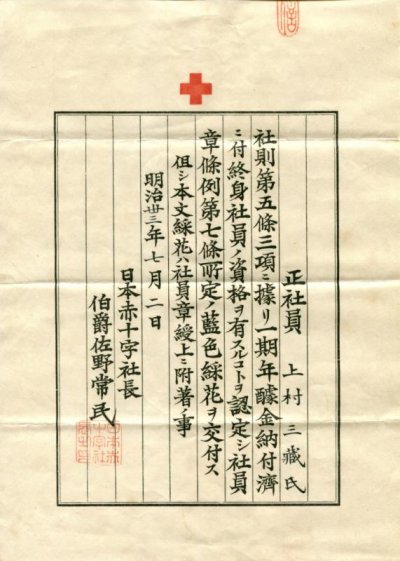 正社員　上村三藏氏
社則第五條三項ニ據リ一期年醵金納付濟
ニ付終身社員ノ資格ヲ有スルコトヲ認定シ社員
章條例第七條所定ノ藍色綵花ヲ交付ス
但シ本文綵花ハ社員章綬上ニ附著ノ事
明治卅三年七月二日
日本赤十字社長
伯爵佐野常民